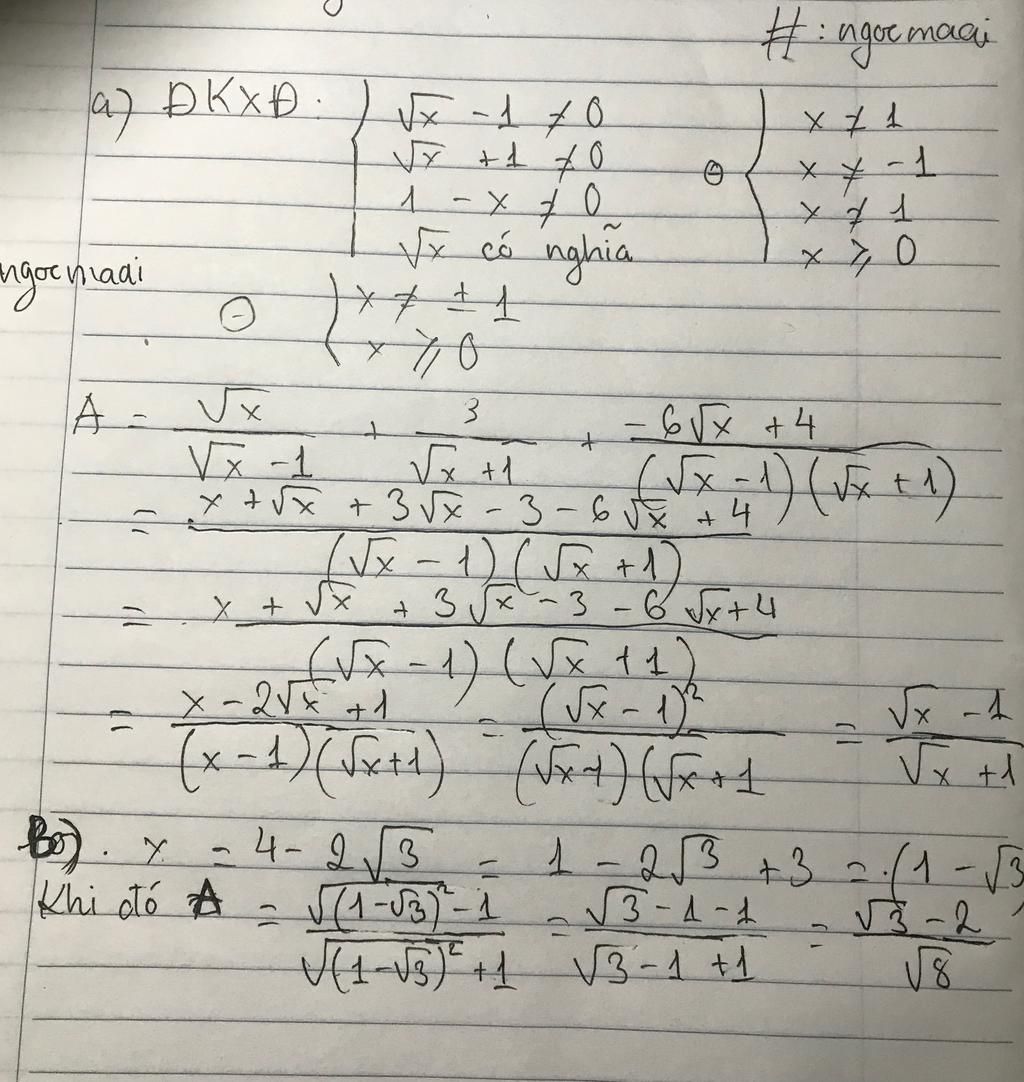 #: ngocmaai
a) ĐKXĐ: { √x - 1 ≠ 0 ⊖ { x ≠ 1
√x + 1 ≠ 0 x ≠ -1
1 - x ≠ 0 x ≠ 1
√x có nghĩa x ≥ 0
ngocmaai
⊖ { x ≠ ± 1
x ≥ 0
A = √x / (√x - 1) + 3 / (√x + 1) + (-6√x + 4) / ((√x - 1)(√x + 1))
= (x + √x + 3√x - 3 - 6√x + 4) / ((√x - 1)(√x + 1))
= (x + √x + 3√x - 3 - 6√x + 4) / ((√x - 1)(√x + 1))
= (x - 2√x + 1) / ((x - 1)(√x + 1)) = (√x - 1)² / ((√x - 1)(√x + 1 = (√x - 1) / (√x + 1)
x = 4 - 2√3 = 1 - 2√3 + 3 = (1 - √3)
Khi đó A = (√(1-√3)² - 1) / (√(1-√3)² + 1) = (√3 - 1 - 1) / (√3 - 1 + 1) = (√3 - 2) / √8